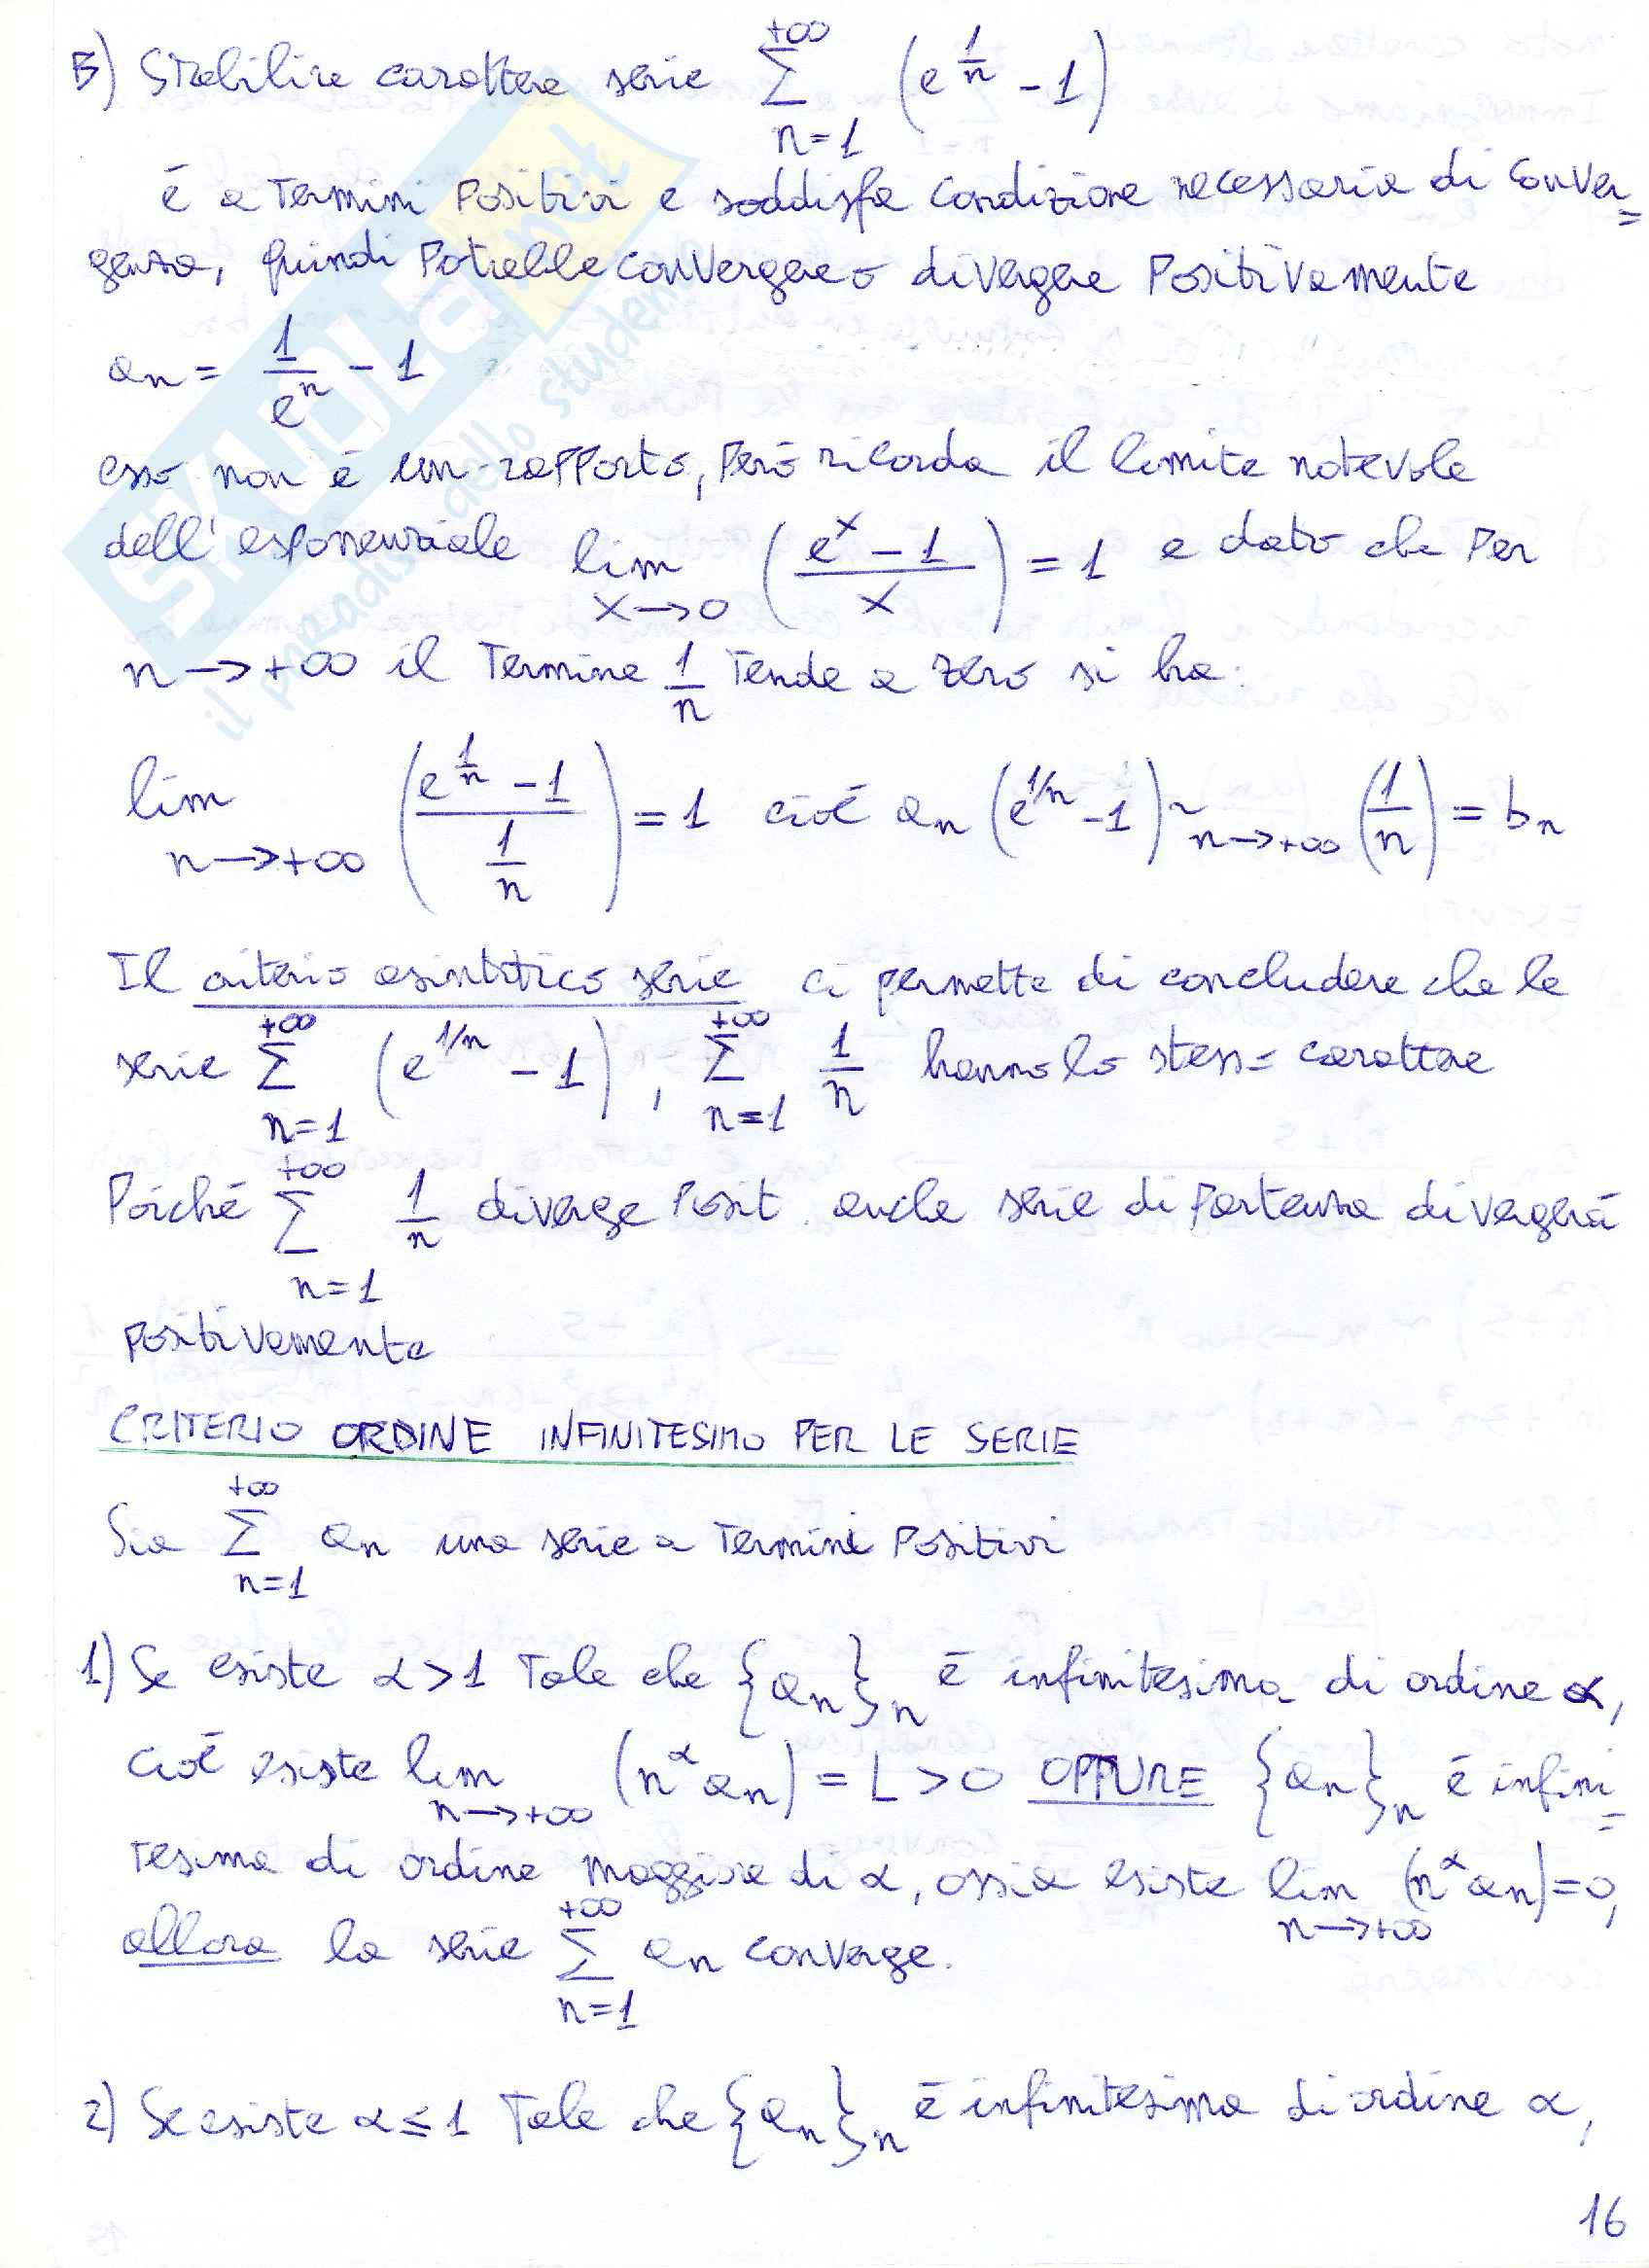 B) Stabilire carattere serie \sum_{n=1}^{+∞} (e^{\frac{1}{n}} - 1)
é a termini positivi e soddisfa condizione necessaria di conver=
genza, quindi potrebbe convergere o divergere positivamente
a_n = \frac{1}{e^n} - 1
esso non é un rapporto, però ricorda il limite notevole
dell'esponenziale \lim_{x→0} (\frac{e^x - 1}{x}) = 1 e dato che per
n→+∞ il termine \frac{1}{n} tende a zero si ha:
\lim_{n→+∞} (\frac{e^{\frac{1}{n}} - 1}{\frac{1}{n}}) = 1 cioé a_n (e^{1/n} - 1) ~_{n→+∞} (\frac{1}{n}) = b_n
Il criterio asintotico serie ci permette di concludere che le
serie \sum_{n=1}^{+∞} (e^{1/n} - 1), \sum_{n=1}^{+∞} \frac{1}{n} hanno lo stesso carattere
Poiché \sum_{n=1}^{+∞} \frac{1}{n} diverge posit. anche serie di partenza divergerà
positivamente
CRITERIO ORDINE INFINITESIMO PER LE SERIE
Sia \sum_{n=1}^{+∞} a_n una serie a termini positivi
1) Se esiste α>1 tale che {a_n}_n é infinitesima di ordine α,
cioé esiste \lim_{n→+∞} (n^α a_n) = L > 0 OPPURE {a_n}_n é infini=
tesima di ordine maggiore di α, ossia esiste \lim_{n→+∞} (n^α a_n) = 0,
allora la serie \sum_{n=1}^{+∞} a_n converge.
2) Se esiste α≤1 tale che {a_n}_n é infinitesima di ordine α,
16
SKUOLA.net
il paradiso dello studente